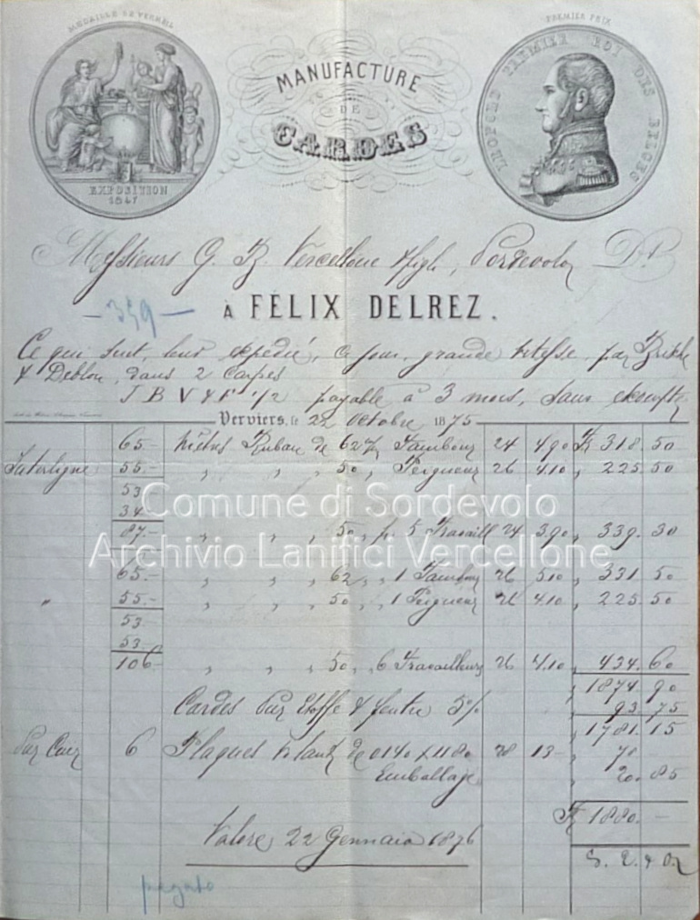 MÉDAILLE DE VERMEIL
PREMIER PRIX
MANUFACTURE
DE
CARDES
EXPOSITION
1847
LEOPOLD PREMIER ROI DES BELGES
Messieurs G. B. Vercellone & figli, Sordevolo Dt
— 359 —
À FÉLIX DELREZ.
Ce qui suit, leur expédié, ce jour, grande vitesse, par
& Deblon, dans 2 Caisses
J B V & F 1/2 payable à 3 mois, sans escompte
Verviers, le 22 octobre 1875
65.- mètres Ruban de 62 Tambour 24 4.90 Fr 318. 50
55.- " " " 50 " Peigneur 26 4.10 " 225. 50
53
34
87.- " " " 50 " p 5 Travaill 24 3.90 " 339. 30
65.- " " " 62 " " 1 Tambour 26 5.10 " 331. 50
" 55.- " " " 50 " " 1 Peigneur 26 4.10 " 225. 50
53
53
106 " " " 50 " 6 Travailleurs 26 4.10 " 434. 60
" 1874. 90
Cardes sur étoffe & feutre 5% " 93. 75
" 1781. 15
Sur Cuir 6 Plaques volants de 0140 x 1180 28 13- " 78
Emballage " 20. 85
Fr 1880. —
Valore 22 Gennaio 1876
S. E. & O.
pagato
Comune di Sordevolo
Archivio Lanifici Vercellone